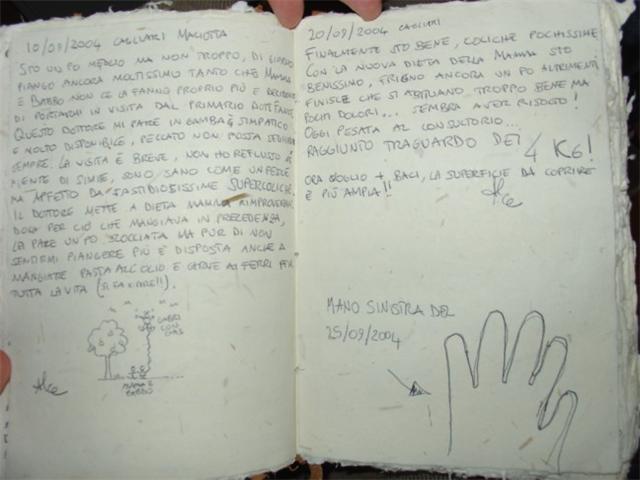 10/09/2004 CAGLIARI MAGIOTTA
STO UN PO MEGLIO MA NON TROPPO, DI GIORNO
PIANGO ANCORA MOLTISSIMO TANTO CHE MAMMA
E BABBO NON CE LA FANNO PROPRIO PIÙ E DECIDONO
DI PORTARMI IN VISITA DAL PRIMARIO DOTT.
QUESTO DOTTORE MI PARE IN GAMBA E SIMPATICO
E MOLTO DISPONIBILE, PECCATO NON POSSA
SEMPRE. LA VISITA È BREVE, NON HO REFLUSSO NÈ
NIENTE DI SIMILE, SONO SANO COME UN PESCE
MA AFFETTO DA FASTIDIOSISSIME SUPERCOLICHE.
IL DOTTORE METTE A DIETA MAMMA RIMPROVERAN
DOLA PER CIÒ CHE MANGIAVA IN PRECEDENZA,
LEI PARE UN PO SCOCCIATA MA PUR DI NON
SENTIRMI PIANGERE PIÙ È DISPOSTA ANCHE A
MANGIARE PASTA ALL'OLIO E CARNE AI FERRI PER
TUTTA LA VITA (SI FA X DIRE!!).
GABRI
CON
GAS
MAMMA E
BABBO
20/09/2004 CAGLIARI
FINALMENTE STO BENE, COLICHE POCHISSIME
CON LA NUOVA DIETA DELLA MAMMA STO
BENISSIMO, FRIGNO ANCORA UN PO ALTRIMENTI
FINISCE CHE SI ABITUANO TROPPO BENE MA
POCHI DOLORI... SEMBRA AVER RISOLTO!
OGGI PESATA AL CONSULTORIO...
RAGGIUNTO TRAGUARDO DEI 4 KG!
ORA VOGLIO + BACI, LA SUPERFICIE DA COPRIRE
È PIÙ AMPIA!!
MANO SINISTRA DEL
25/09/2004